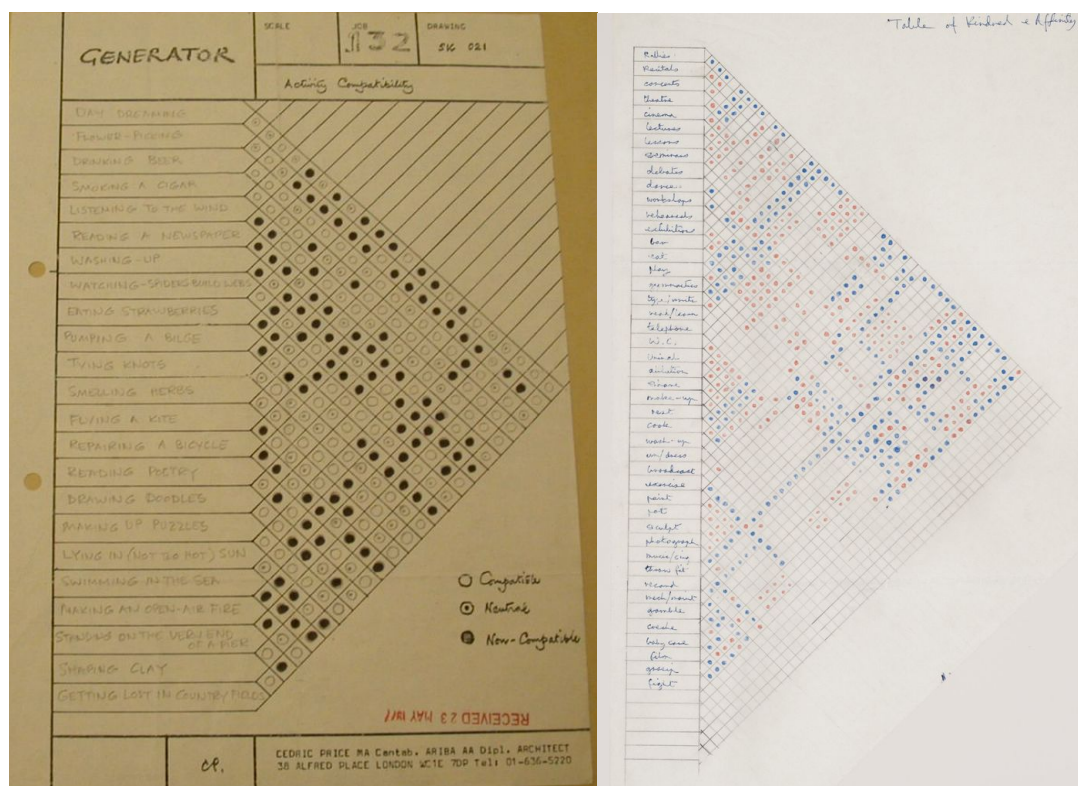 GENERATOR
SCALE
JOB
132
DRAWING
SK 021
Activity Compatibility
DAY DREAMING
FLOWER-PICKING
DRINKING BEER
SMOKING A CIGAR
LISTENING TO THE WIND
READING A NEWSPAPER
WASHING-UP
WATCHING-SPIDERS BUILD WEBS
EATING STRAWBERRIES
PUMPING A BILGE
TYING KNOTS
SMELLING HERBS
FLYING A KITE
REPAIRING A BICYCLE
READING POETRY
DRAWING DOODLES
MAKING UP PUZZLES
LYING IN (NOT TOO HOT) SUN
SWIMMING IN THE SEA
MAKING AN OPEN-AIR FIRE
STANDING ON THE VERY END
OF A PIER
SHAPING CLAY
GETTING LOST IN COUNTRY FIELDS
Compatible
Neutral
Non-Compatible
RECEIVED 23 MAY 1977
CP.
CEDRIC PRICE MA Cantab. ARIBA AA Dipl. ARCHITECT
38 ALFRED PLACE LONDON WC1E 7DP Tel: 01-636-5220
Table of Kindred & Affinity
Rallies
Recitals
concerts
theatre
cinema
lectures
lessons
seminars
debates
dance
workshops
rehearsals
exhibitions
bar
eat
play
type/write
read/learn
telephone
W.C.
Urinal
make-up
rest
cook
wash-up
un/dress
broadcast
exercise
paint
pot
sculpt
photograph
music/sing
record
gamble
creche
baby care
film
gossip
fight